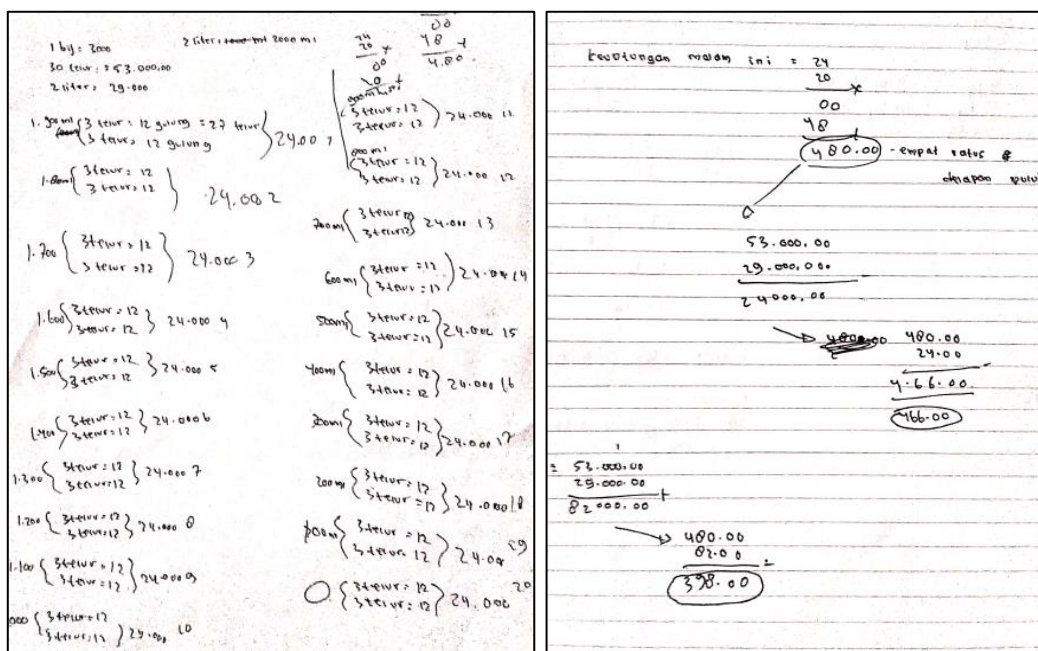 00
1 bij = 3000
2 liter = 2000 ml
30 telur = 53.000,00
2 liter = 29.000
24
20 x
00
48 +
4.80
1. 900 ml { 3 telur = 12 gulung = 27 telur
3 telur = 12 gulung } 24.00 1
1.800ml { 3 telur = 12
3 telur = 12 } 24.000 2
1.700 { 3 telur = 12
3 telur = 12 } 24.000 3
1.600 { 3 telur = 12
3 telur = 12 } 24.000 4
1.500 { 3 telur = 12
3 telur = 12 } 24.000 5
1.400 { 3 telur = 12
3 telur = 12 } 24.000 6
1.300 { 3 telur = 12
3 telur = 12 } 24.000 7
1.200 { 3 telur = 12
3 telur = 12 } 24.000 8
1.100 { 3 telur = 12
3 telur = 12 } 24.000 9
000 { 3 telur = 12
3 telur = 12 } 24.000 10
{ 3 telur = 12
3 telur = 12 } 24.000 11
800 ml
{ 3 telur = 12
3 telur = 12 } 24.000 12
700 ml { 3 telur 12
3 telur 12 } 24.000 13
600 ml { 3 telur = 12
3 telur = 12 } 24.000 14
500ml { 3 telur = 12
3 telur = 12 } 24.000 15
400ml { 3 telur = 12
3 telur = 12 } 24.000 16
300ml { 3 telur = 12
3 telur = 12 } 24.000 17
200ml { 3 telur = 12
3 telur = 12 } 24.000 18
100ml { 3 telur = 12
3 telur 12 } 24.00 19
0 { 3 telur = 12
3 telur = 12 } 24.000 20
keuntungan malam ini = 24
20 x
00
48 +
480.00 - empat ratus
delapan pulu
53.000.00
29.000,000 -
24000.00
480.00
24.00
4.66.00
466.00
= 53.000.00
29.000.00 +
82000.00
480.00
82.00 =
398.00